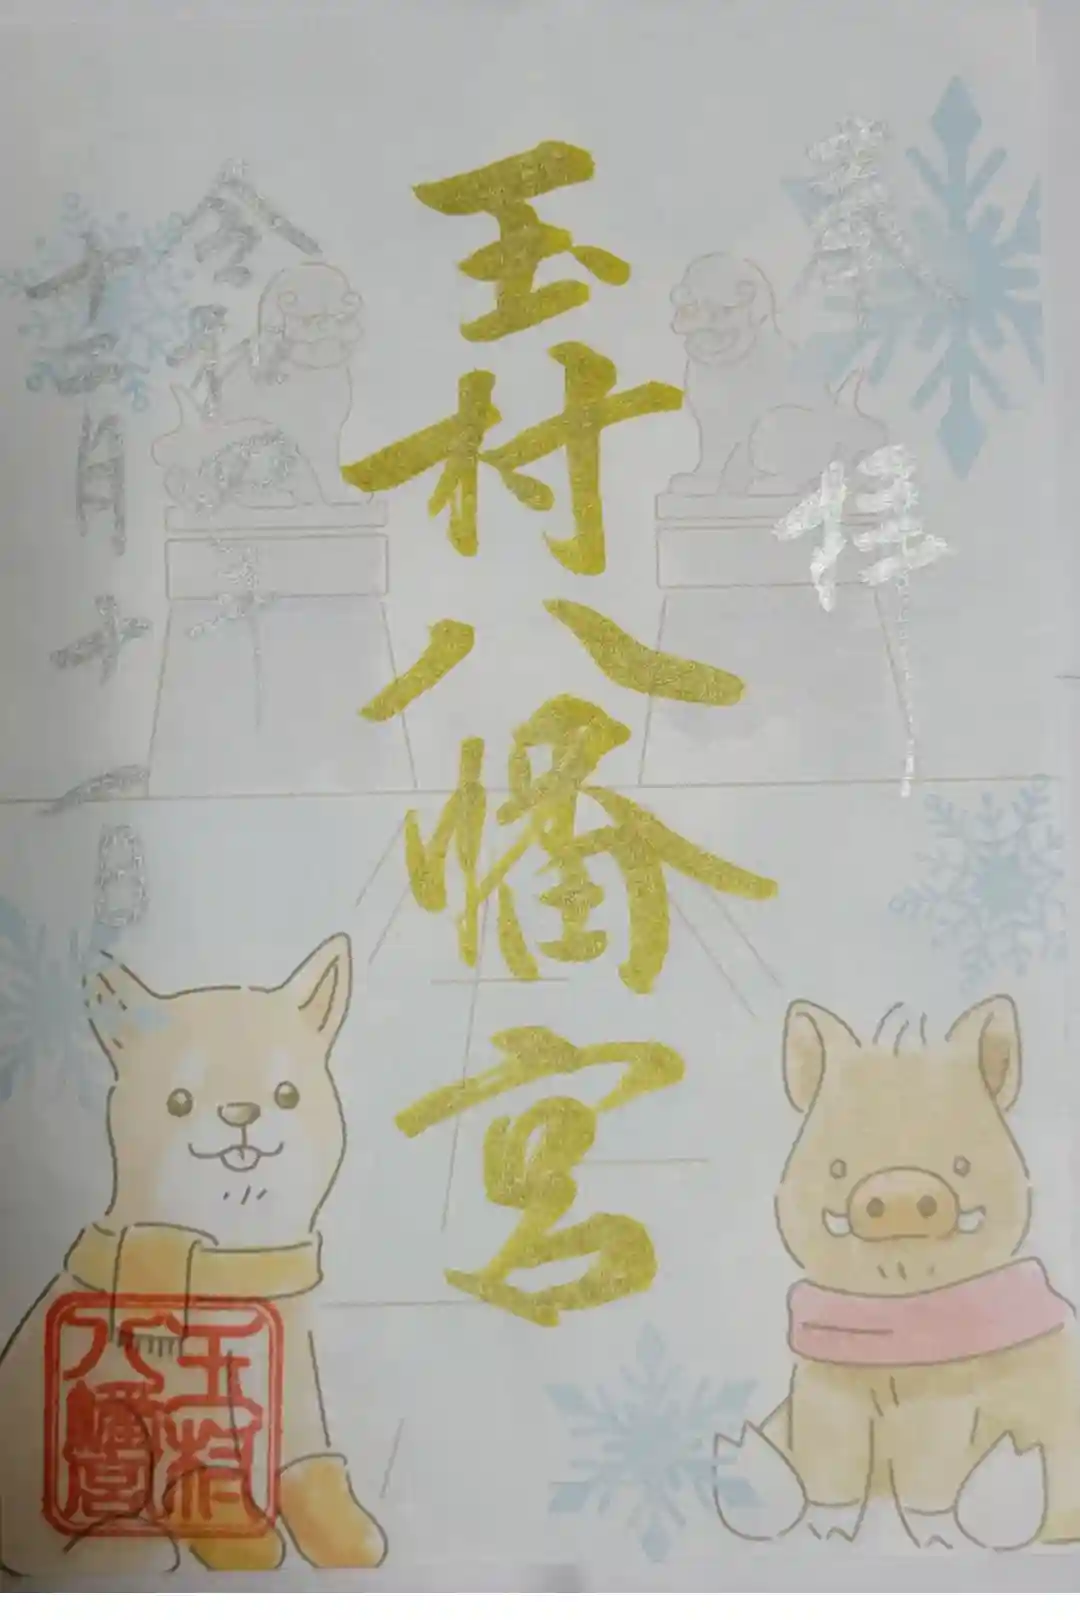 奉拝
玉村八幡宮
令和元年
十二月十一日
玉村
八幡宮